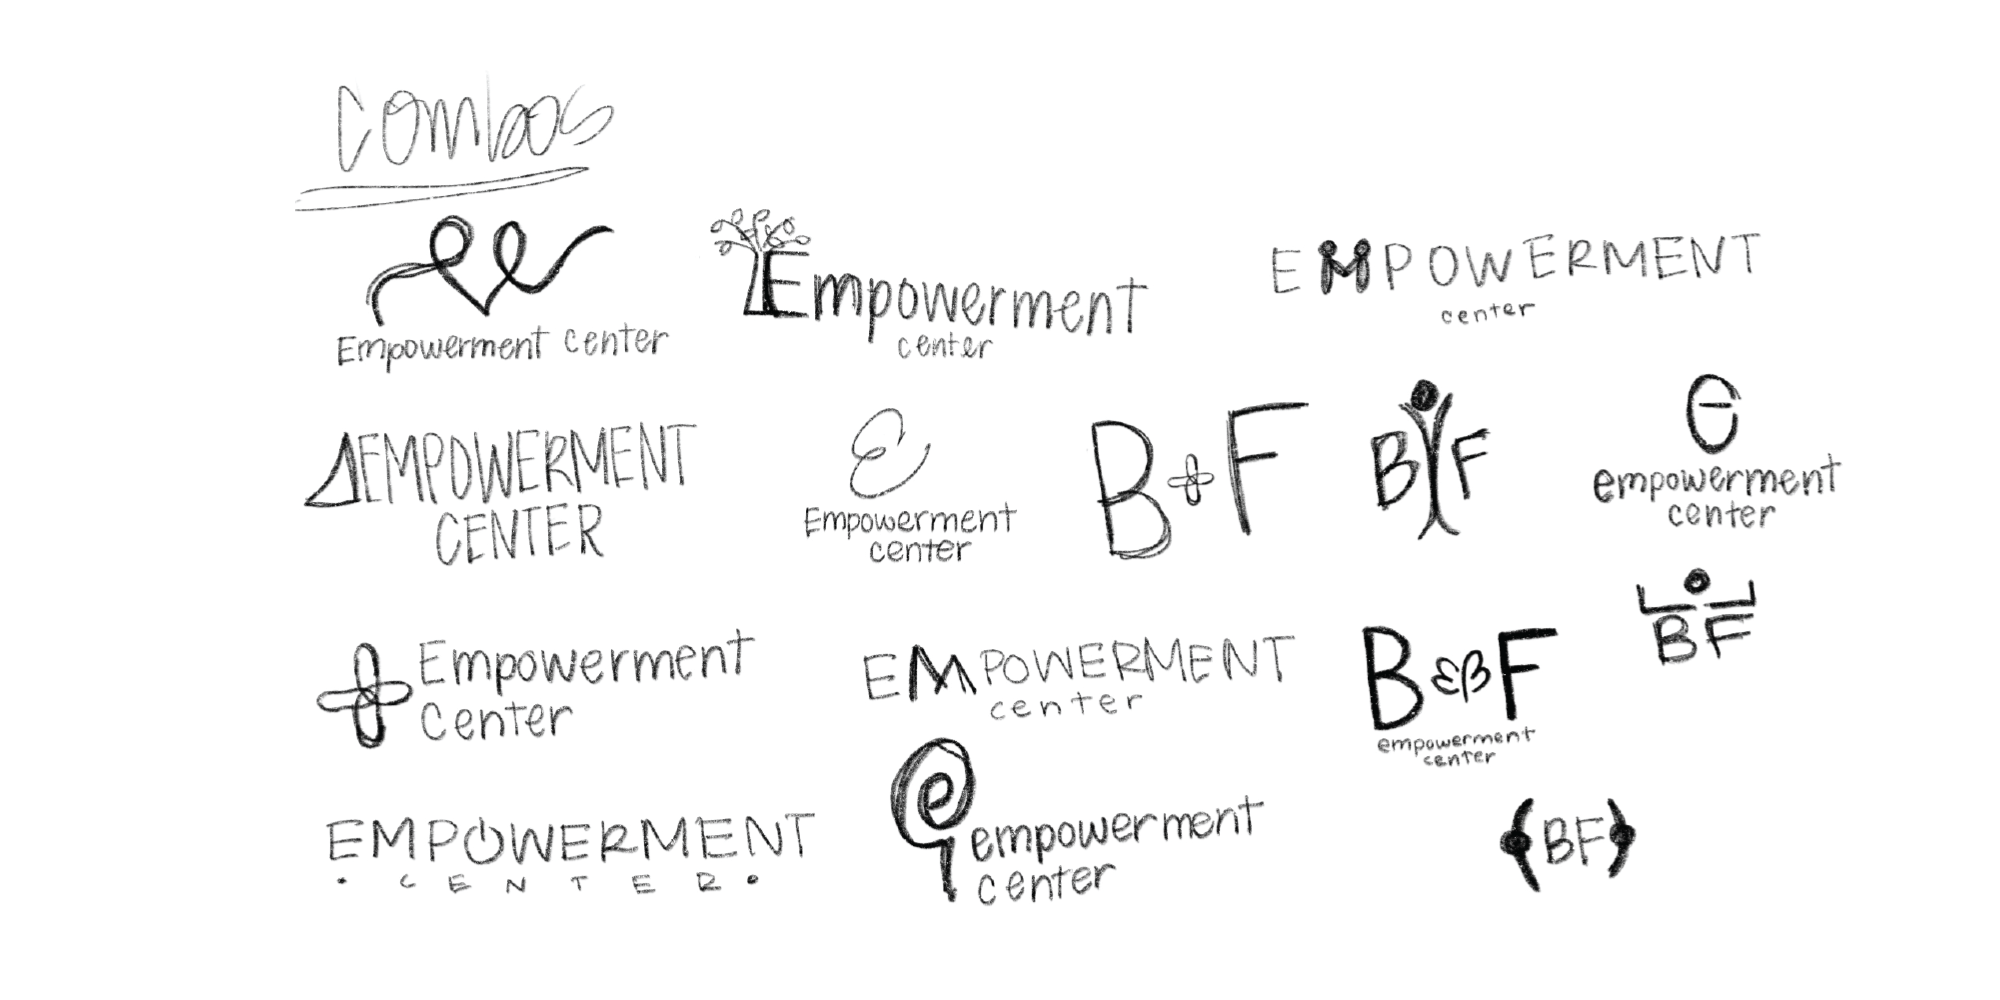 combos
Empowerment center
Empowerment
center
EMPOWERMENT
center
EMPOWERMENT
CENTER
Empowerment
center
B+F
B F
empowerment
center
Empowerment
Center
EMPOWERMENT
center
B F
empowerment
center
BF
EMPOWERMENT
• CENTER •
e
empowerment
center
(BF)